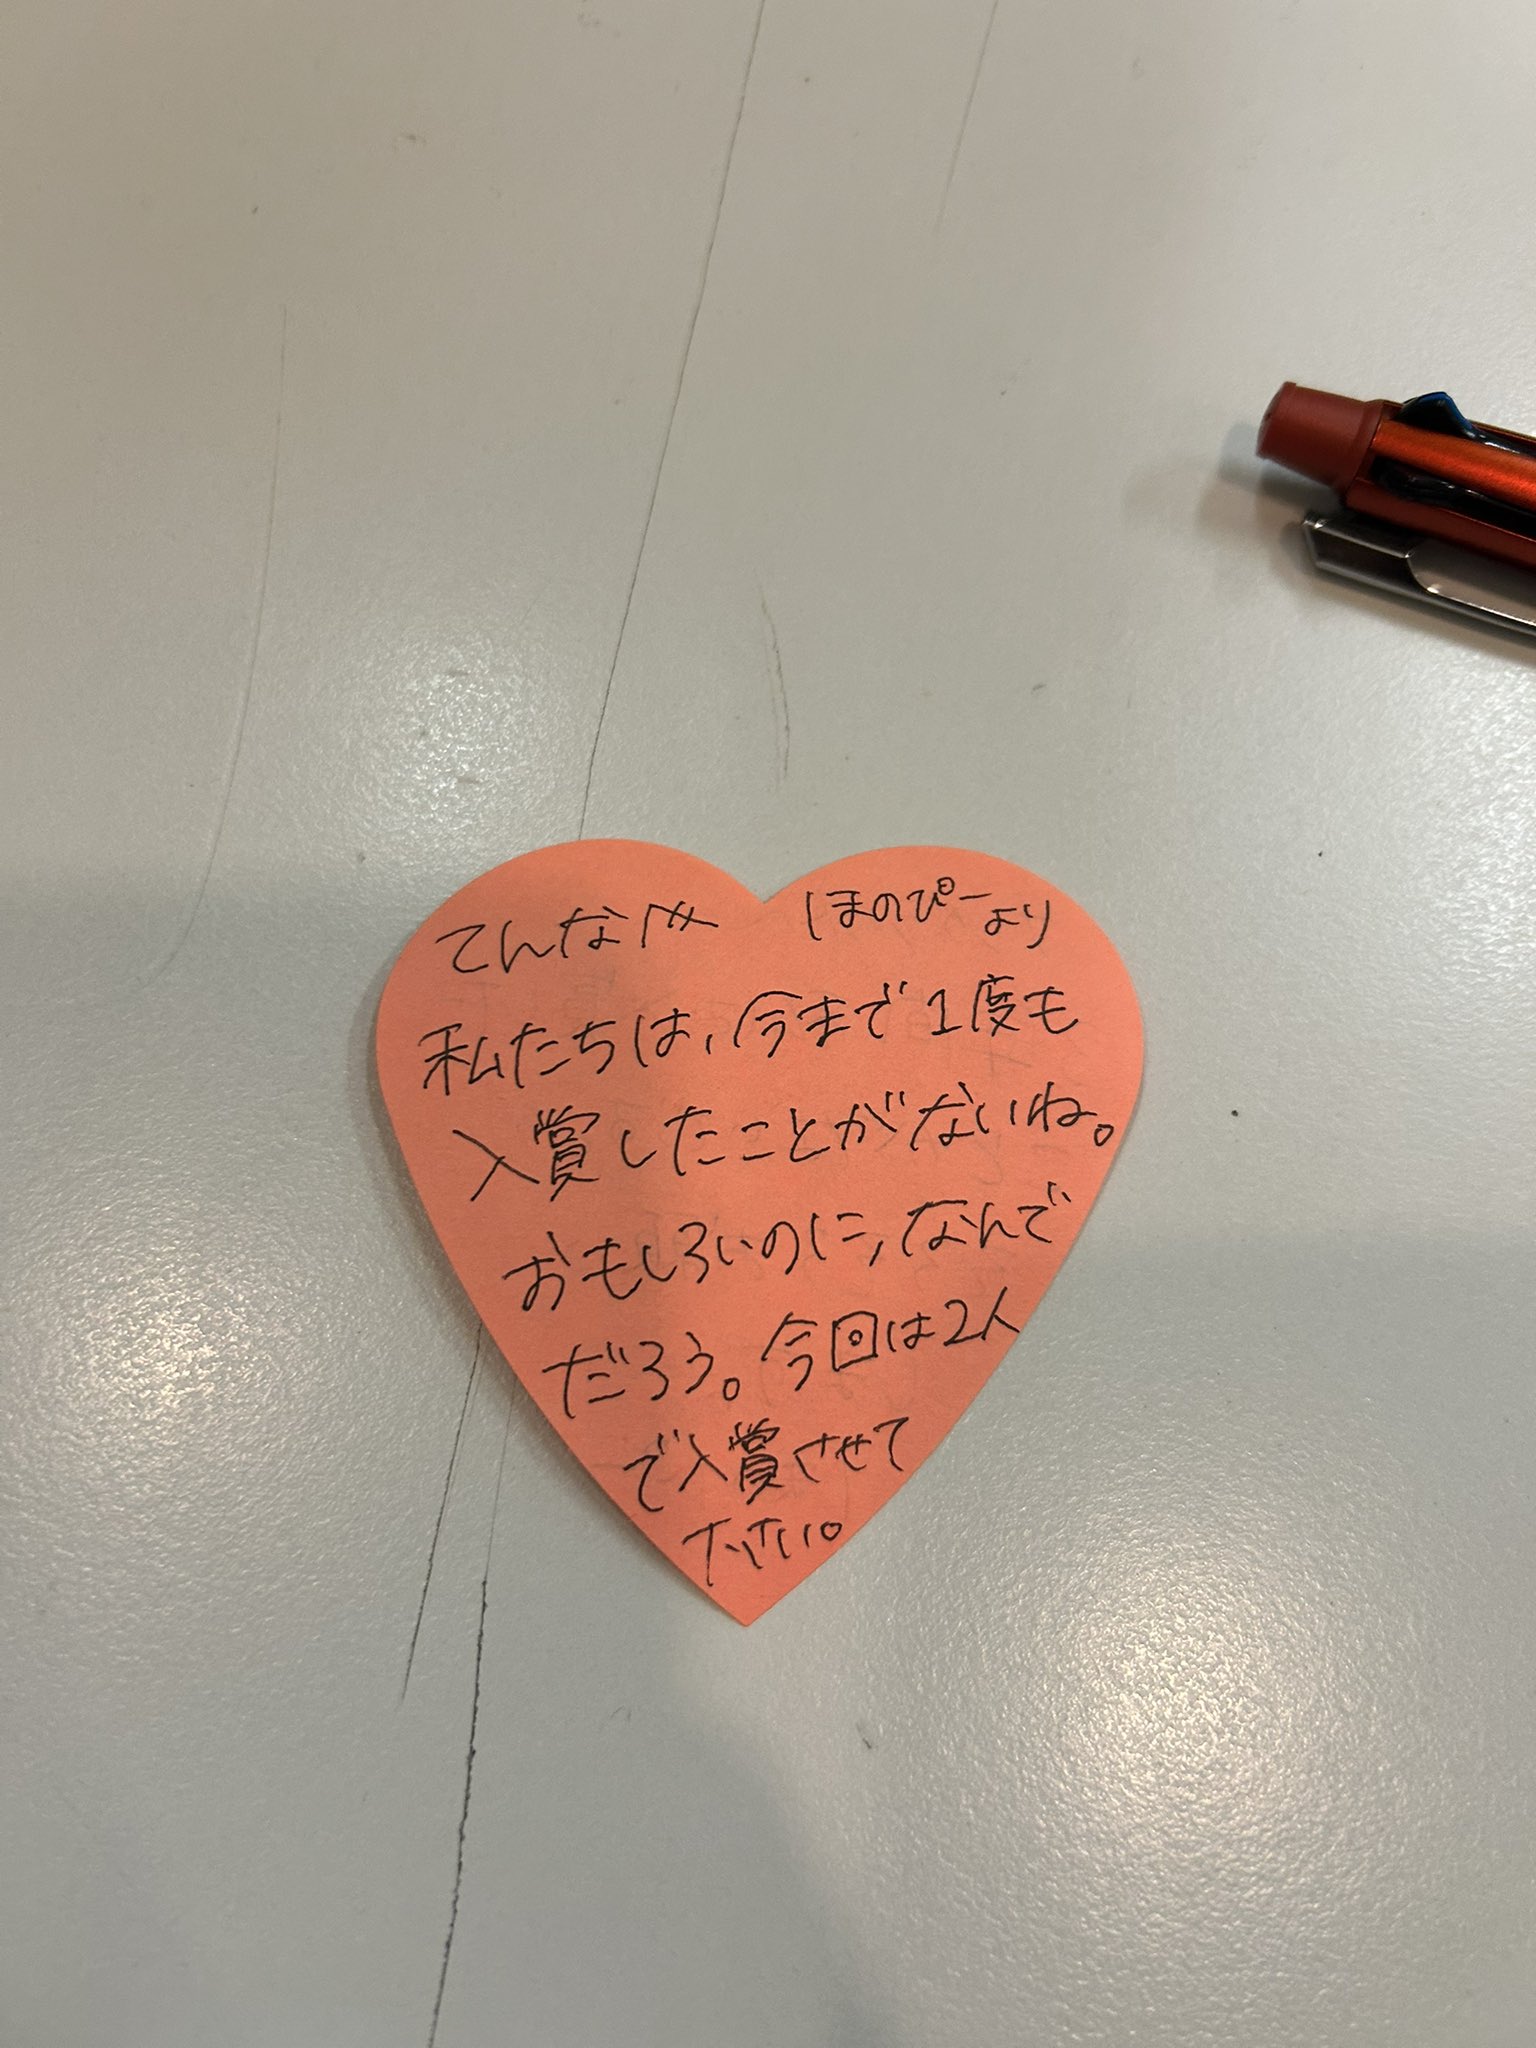 てんなへ ほのぴーより
私たちは、今まで1度も
入賞したことがないね。
おもしろいのに、なんで
だろう。今回は2人
で入賞させて
ださい。